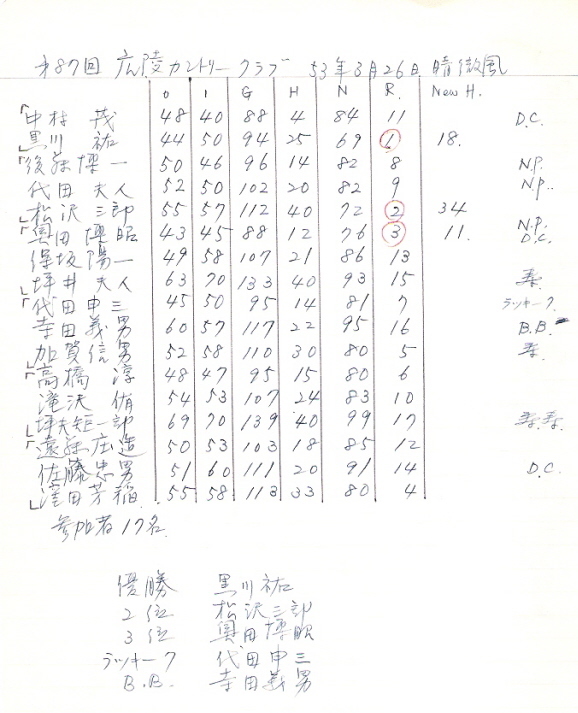 第87回 広陵カントリークラブ 53年3月26日 晴微風
O I G H N R. New H.
「中村 茂 48 40 88 4 84 11 D.C.
黒川 祐 44 50 94 25 69 1 18.
「後藤博一 50 46 96 14 82 8 N.P.
代田夫人 52 50 102 20 82 9 N.P..
松沢三郎 55 57 112 40 72 2 34
「奥田博昭 43 45 88 12 76 3 11. N.P. D.C.
保坂陽一 49 58 107 21 86 13
坪井夫人 63 70 133 40 93 15 寿
「代田申三 45 50 95 14 81 7 ラッキー7
寺田義男 60 57 117 22 95 16 B.B.
加賀信男 52 58 110 30 80 5 寿.
「高橋 淳 48 47 95 15 80 6
滝沢 侑 54 53 107 24 83 10
坪夫矩一郎 69 70 139 40 99 17 寿.寿.
「遠藤庄造 50 53 103 18 85 12
佐藤忠男 51 60 111 20 91 14 D.C.
窪田芳稲 55 58 113 33 80 4
参加者17名
優勝 黒川祐
2位 松沢三郎
3位 奥田博昭
ラッキー7 代田申三
B.B. 寺田義男